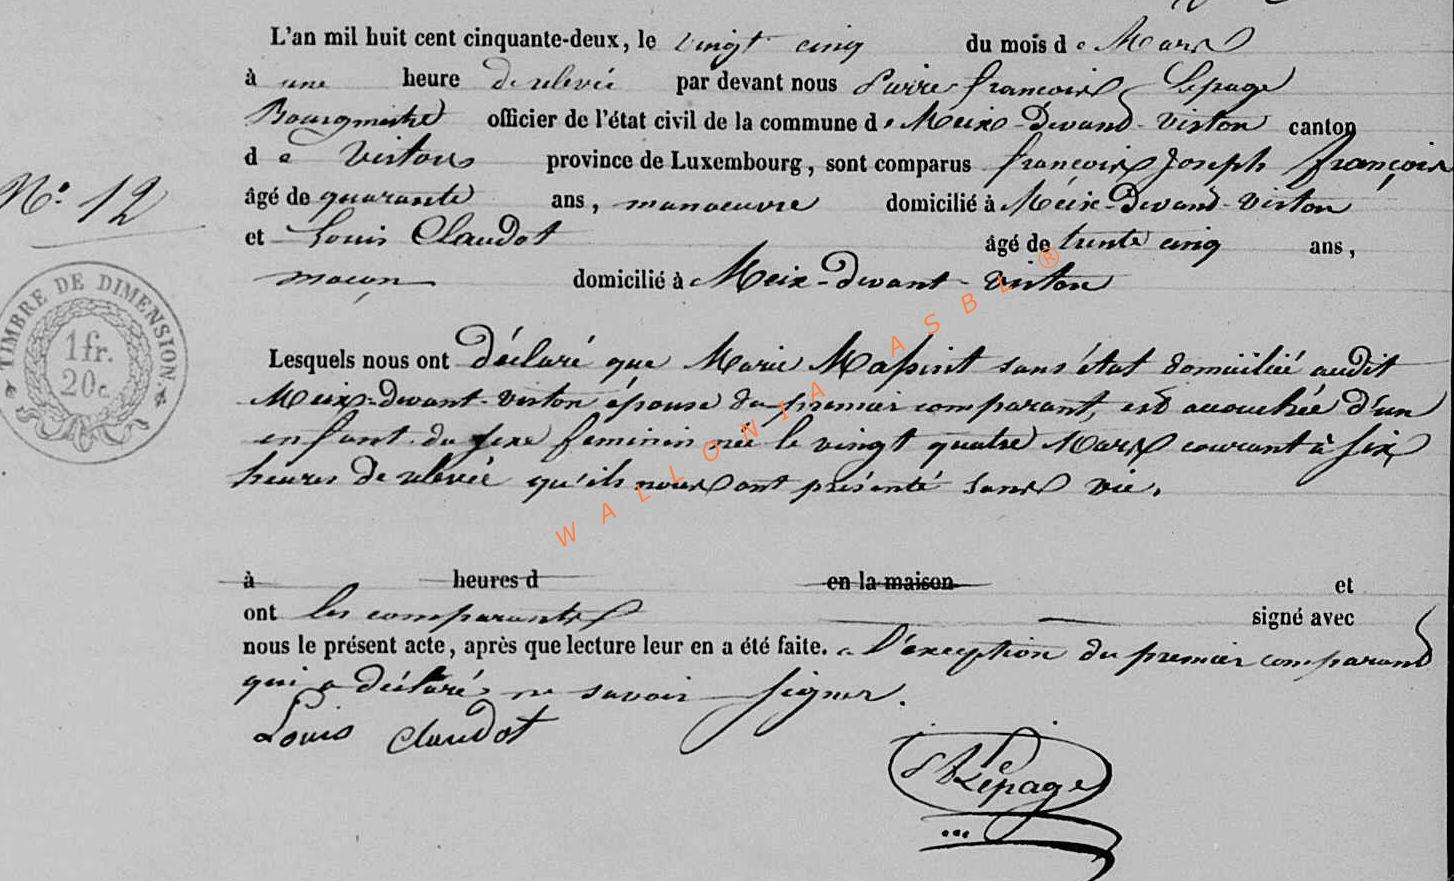 L'an mil huit cent cinquante-deux, le vingt cinq du mois de Mars
à une heure de relevée par devant nous Pierre françois Lepage
Bourgmestre officier de l'état civil de la commune de Meix-Devant-Virton canton
de Virton province de Luxembourg, sont comparus françois Joseph françois
N.º 12
âgé de quarante ans, manoeuvre domicilié à Meix-Devant-Virton
et Louis Claudot âgé de trente cinq ans,
maçon domicilié à Meix-Devant-Virton
TIMBRE DE DIMENSION.
1 fr.
20 c.
Lesquels nous ont déclaré que Marie Massint sans état domiciliée audit
Meix-devant-virton épouse du premier comparant, est accouchée d'un
enfant du sexe feminin née le vingt quatre Mars courant à six
heures de relevée qu'ils nous ont présenté sans vie.
WALLONIA ASBL ®
à heures d en la maison et
ont les comparants signé avec
nous le présent acte, après que lecture leur en a été faite. a l'exception du premier comparant
qui a déclaré ne savoir signer.
Louis Claudot
Lepage